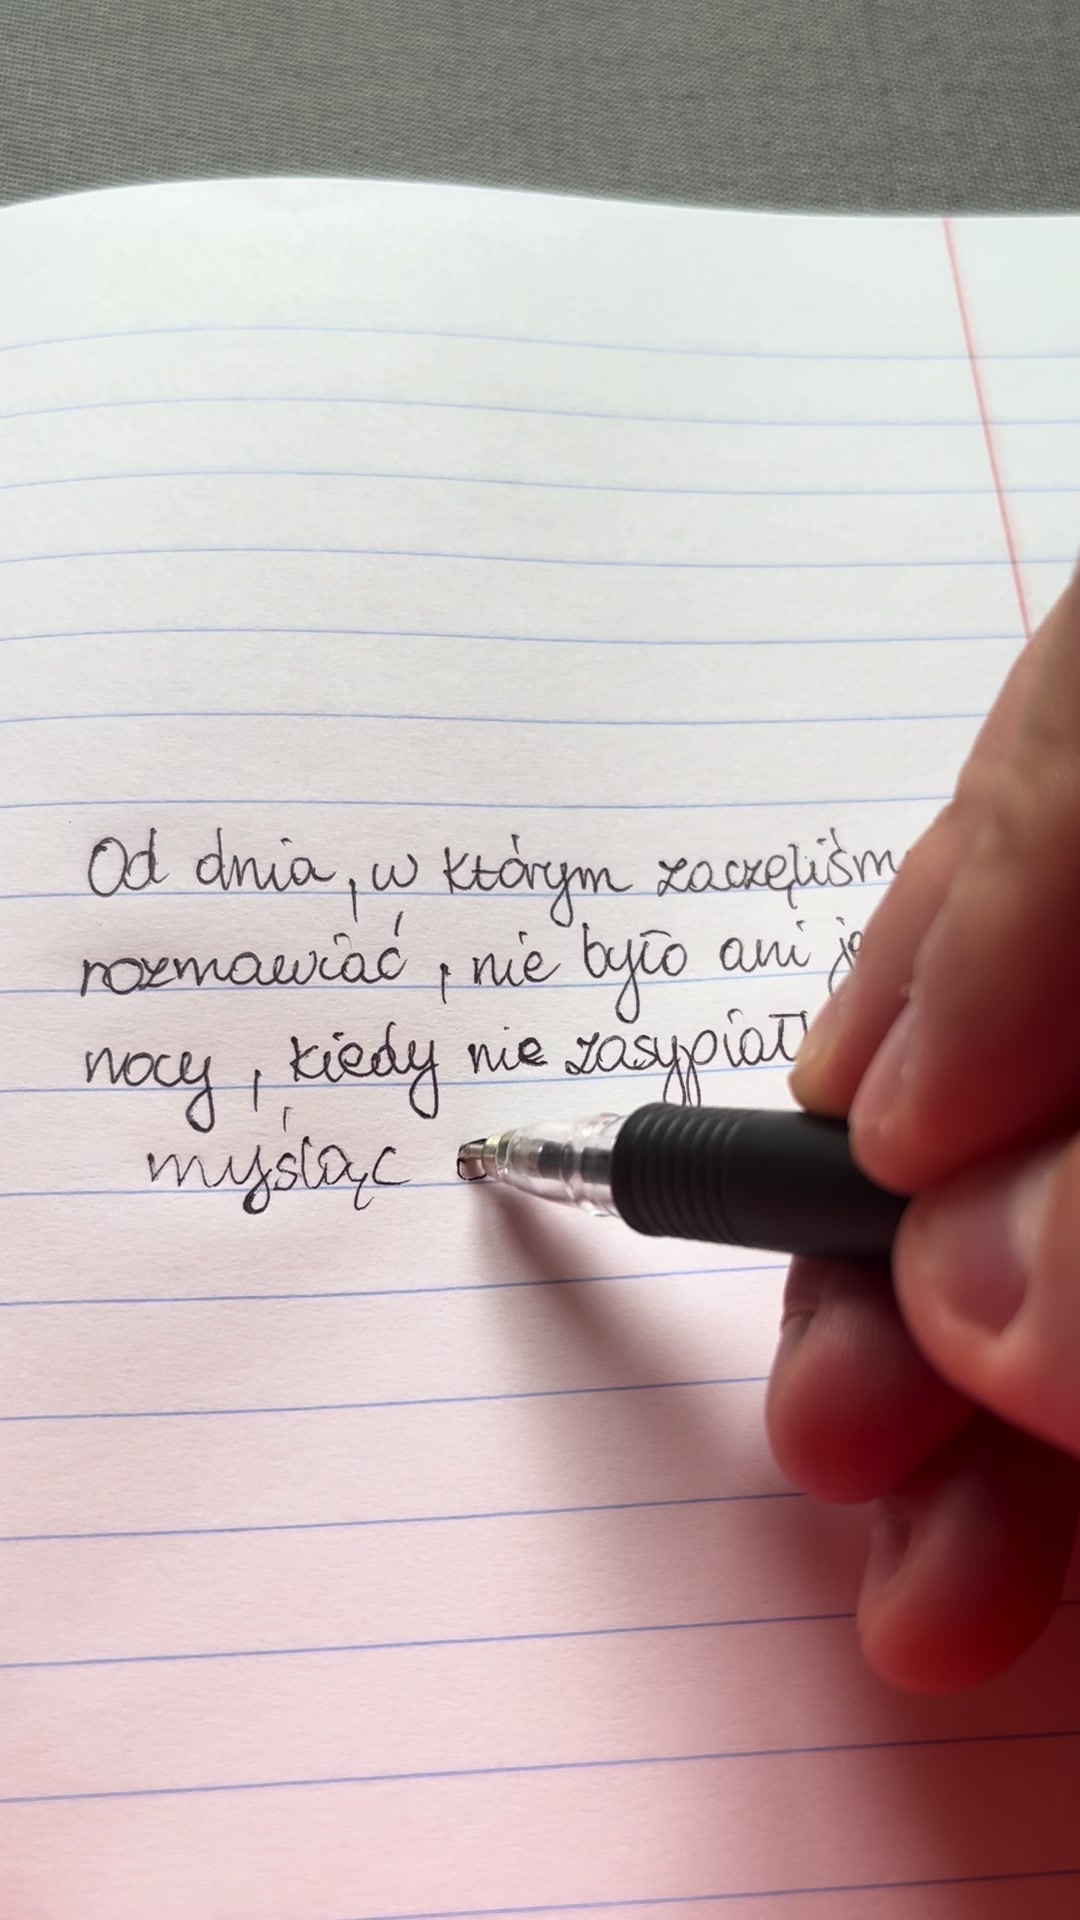 Od dnia, w którym zaczęliśm
rozmawiać, nie było ani
nocy, kiedy nie zasypiał
myśląc